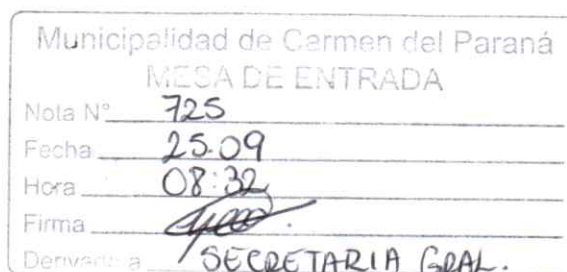 Municipalidad de Carmen del Paraná
MESA DE ENTRADA
Nota N° 725
Fecha 25.09
Hora 08:32
Firma
Derivado a SECRETARIA GRAL.